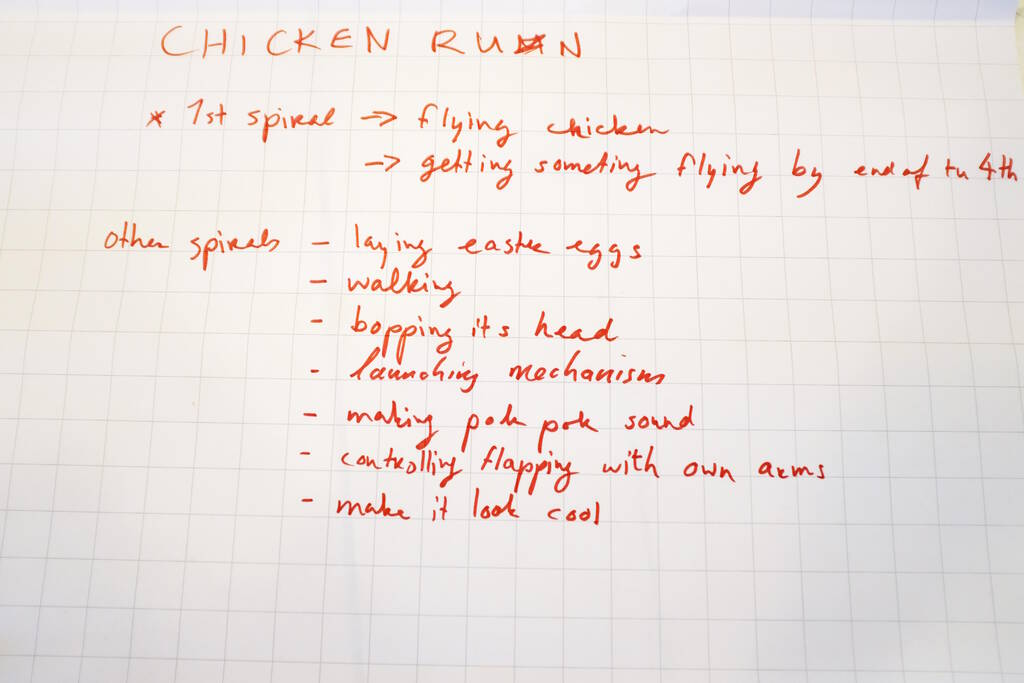 CHICKEN RUN
* 1st spiral → flying chicken
→ getting someting flying by end of tu 4th
other spirals - laying easter eggs
- walking
- bopping it's head
- launching mechanism
- making pok pok sound
- controlling flapping with own arms
- make it look cool